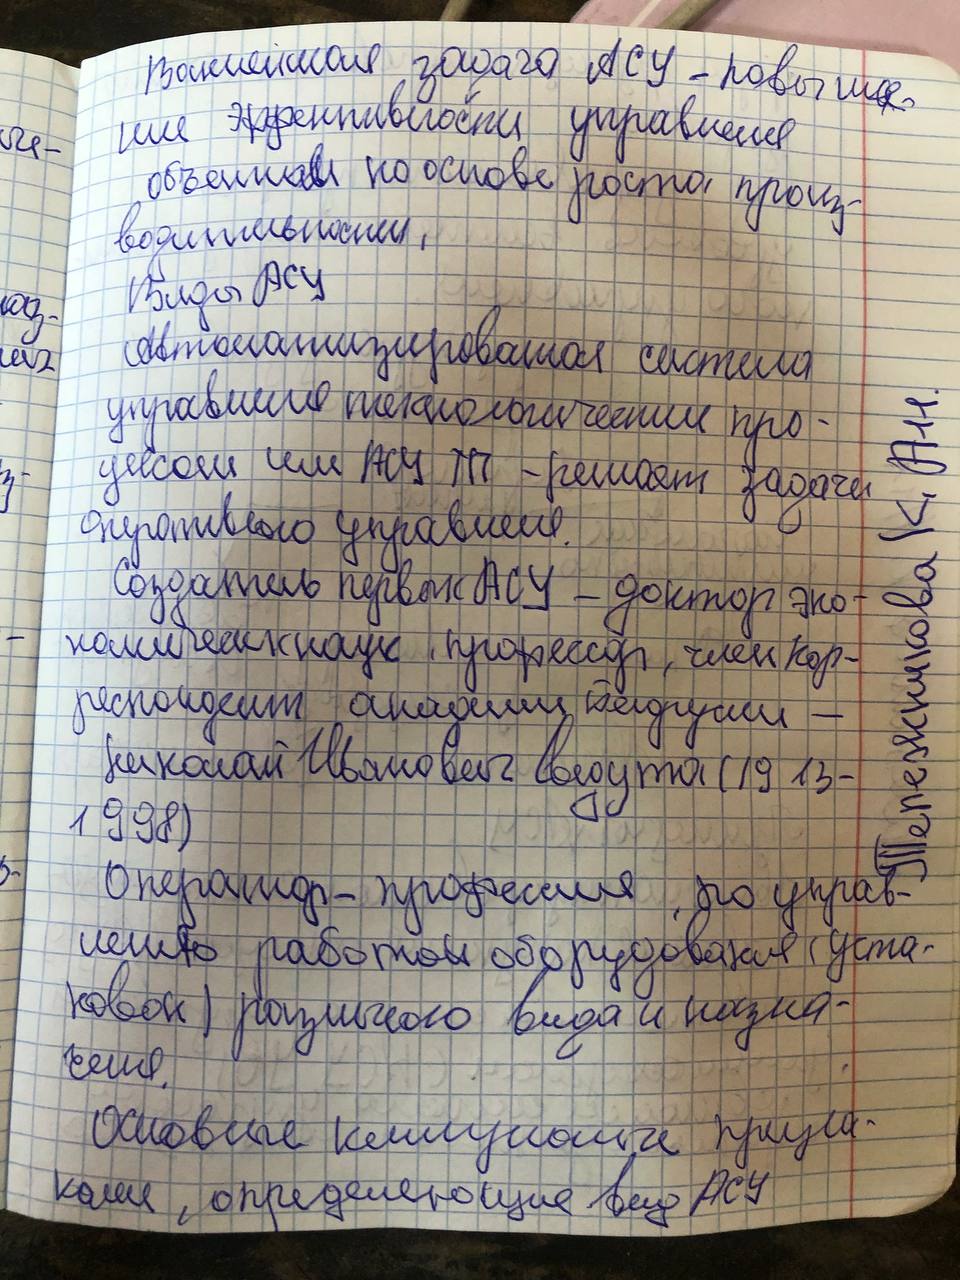 Важнейшая задача АСУ – повыше-
ние эффективности управления
объектам на основе роста произ-
водительности,
Виды АСУ
Автоматизированная система
управление технологическим про-
цессом или АСУ ТП – решает задачи
оперативного управления.
Создатель первых АСУ – доктор эко-
номических наук, профессор, член кор-
респондент академии Белдуссии –
Николай Иванович Ведута (1913-
1998)
Оператор – профессия, по управ-
лению работой оборудования (уста-
новок) различного вида и назна-
чения.
Основные признака-
ками, определяющие вид АСУ
Тележникова К. Ан.
че-